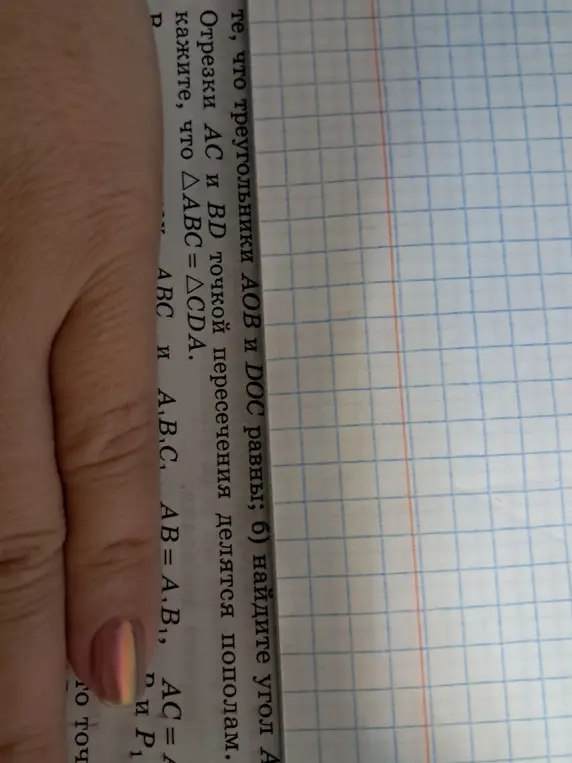 те, что треугольники AOB и DOC равны; б) найдите угол A
Отрезки AC и BD точкой пересечения делятся пополам.
кажите, что △ABC = △CDA.
ABC и A₁B₁C₁ AB = A₁B₁, AC =
и P₁
то точ